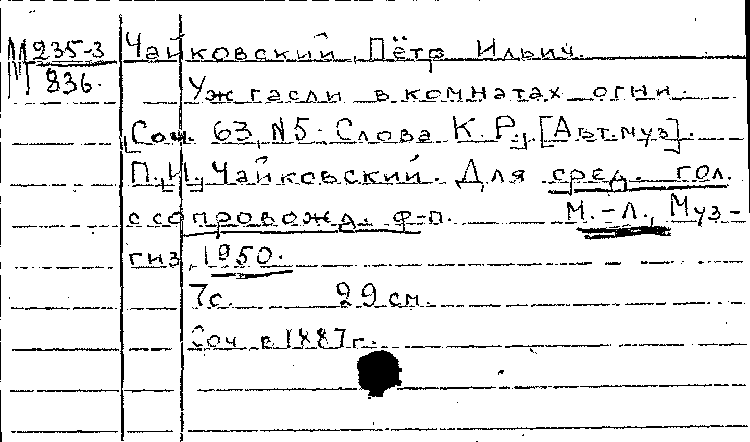 М 235-3 Чайковский, Пётр Ильич.
836. Уж гасли в комнатах огни.
[Соч. 63, N5. Слова К. Р.], [Авт. муз].
П. И. Чайковский. Для сред. гол.
с сопровожд. ф-п. М.-Л., Муз-
гиз, 1950.
7с. 29 см.
Соч. в 1887г.